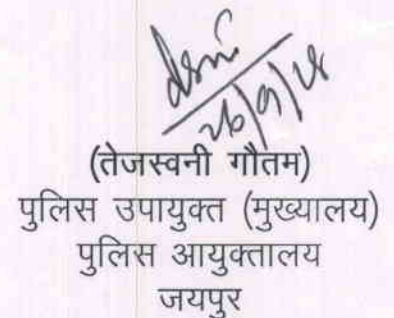 26/9/24
(तेजस्वनी गौतम)
पुलिस उपायुक्त (मुख्यालय)
पुलिस आयुक्तालय
जयपुर